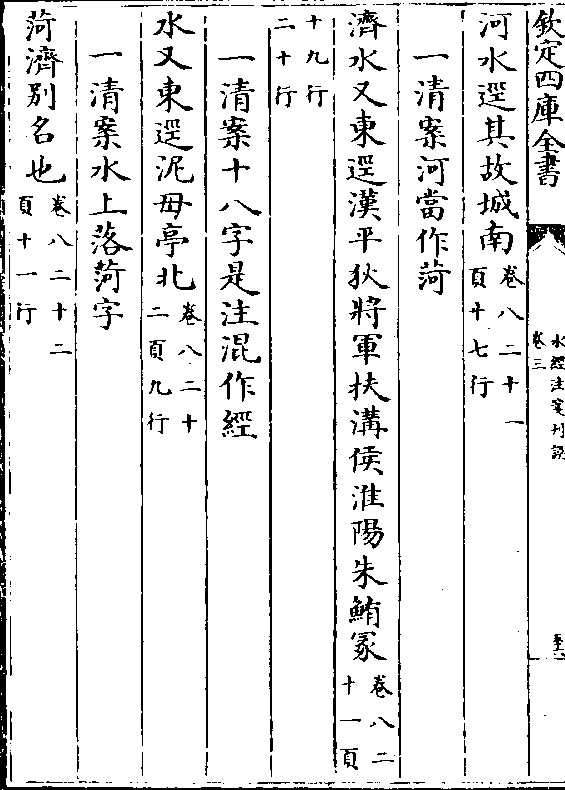 欽定四庫全書
水經注箋刊誤
卷三
河水逕其故城南卷八二十一頁廿七行
一清案河當作菏
濟水又東逕漢平狄將軍扶溝侯淮陽朱鮪冢卷八二十一頁
十九行二十行
一清案十八字是注混作經
水又東逕泥母亭北卷八二十二頁九行
一清案水上落菏字
菏濟别名也卷八二十二頁十一行